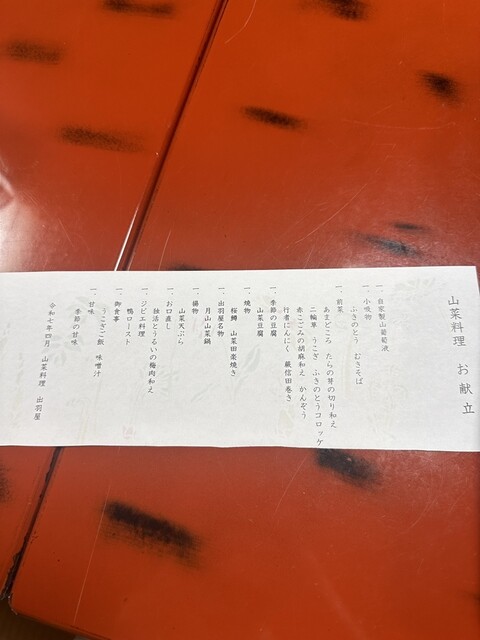 山菜料理 お献立
一、自家製山葡萄液
一、小吸物
ふきのとう むきそば
一、前菜
あまどころ たらの芽の切り和え
二輪草 うこぎ ふきのとうコロッケ
赤こごみの胡麻和え かんぞう
行者にんにく 蕨信田巻き
一、季節の豆腐
山菜豆腐
一、焼物
桜鱒 山菜田楽焼き
一、出羽屋名物
月山山菜鍋
一、揚物
山菜天ぷら
一、お口直し
独活とうるいの梅肉和え
一、ジビエ料理
鴨ロースト
一、御食事
うこぎご飯 味噌汁
一、甘味
季節の甘味
令和七年四月 山菜料理 出羽屋